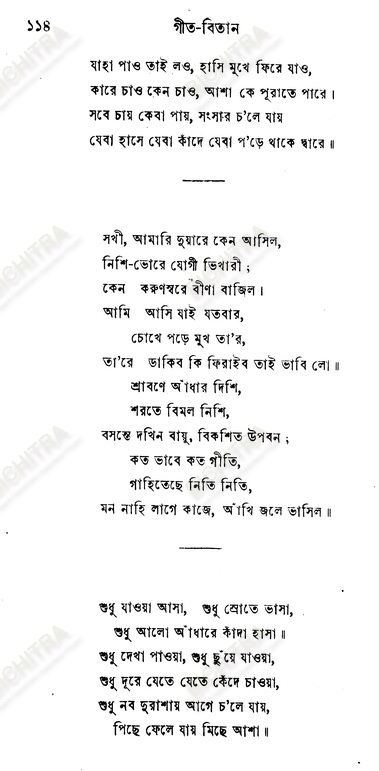 ১১৪ গীত-বিতান
যাহা পাও তাই লও, হাসি মুখে ফিরে যাও,
কারে চাও কেন চাও, আশা কে পূরাতে পারে।
সবে চায় কেবা পায়, সংসার চ'লে যায়
যেবা হাসে যেবা কাঁদে যেবা প'ড়ে থাকে দ্বারে॥
সখী, আমারি দুয়ারে কেন আসিল,
নিশি-ভোরে যোগী ভিখারী;
কেন করুণস্বরে বীণা বাজিল।
আমি আসি যাই যতবার,
চোখে পড়ে মুখ তা'র,
তা'রে ডাকিব কি ফিরাইব তাই ভাবি লো॥
শ্রাবণে আঁধার দিশি,
শরতে বিমল নিশি,
বসন্তে দখিন বায়ু, বিকশিত উপবন;
কত ভাবে কত গীতি,
গাহিতেছে নিতি নিতি,
মন নাহি লাগে কাজে, আঁখি জলে ভাসিল॥
শুধু যাওয়া আসা, শুধু স্রোতে ভাসা,
শুধু আলো আঁধারে কাঁদা হাসা॥
শুধু দেখা পাওয়া, শুধু ছুঁয়ে যাওয়া,
শুধু দূরে যেতে যেতে কেঁদে চাওয়া,
শুধু নব দুরাশায় আগে চ'লে যায়,
পিছে ফেলে যায় মিছে আশা॥